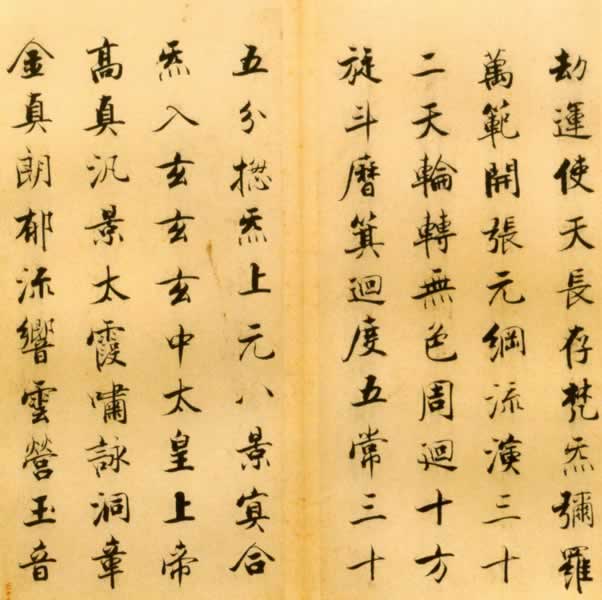 劫運使天長存梵炁彌羅
萬範開張元綱流演三十
二天輪轉無色周迴十方
旋斗曆箕迴度五常三十
五分揔炁上元八景㝠合
炁入玄玄玄中太皇上帝
高真汎景太霞嘯詠洞章
金真朗郁流響雲營玉音